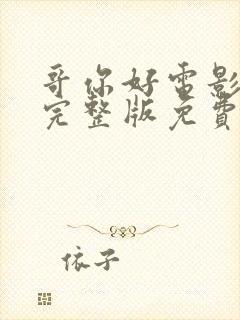 哥你好电影
完整版免費
依子